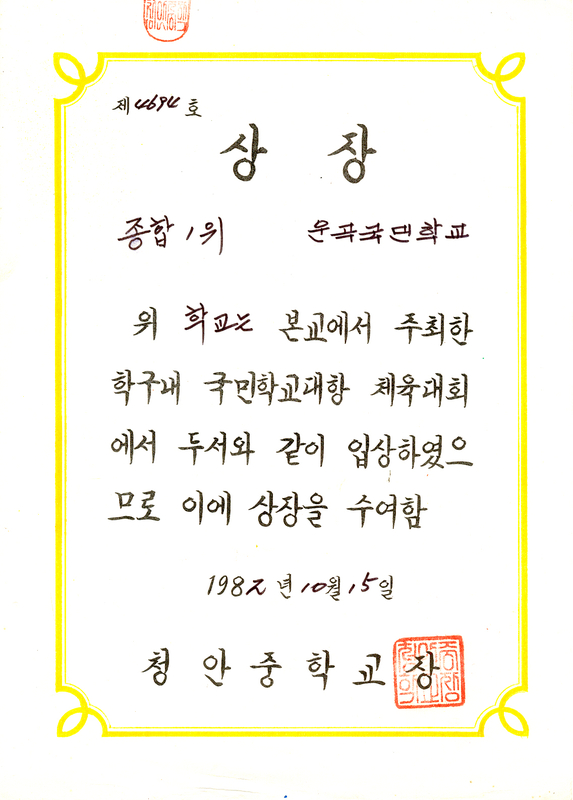 제 4694 호
상 장
종합 1위 운곡국민학교
위 학교는 본교에서 주최한
학구내 국민학교대항 체육대회
에서 두서와 같이 입상하였으
므로 이에 상장을 수여함
1982년 10월 15일
청안중학교장